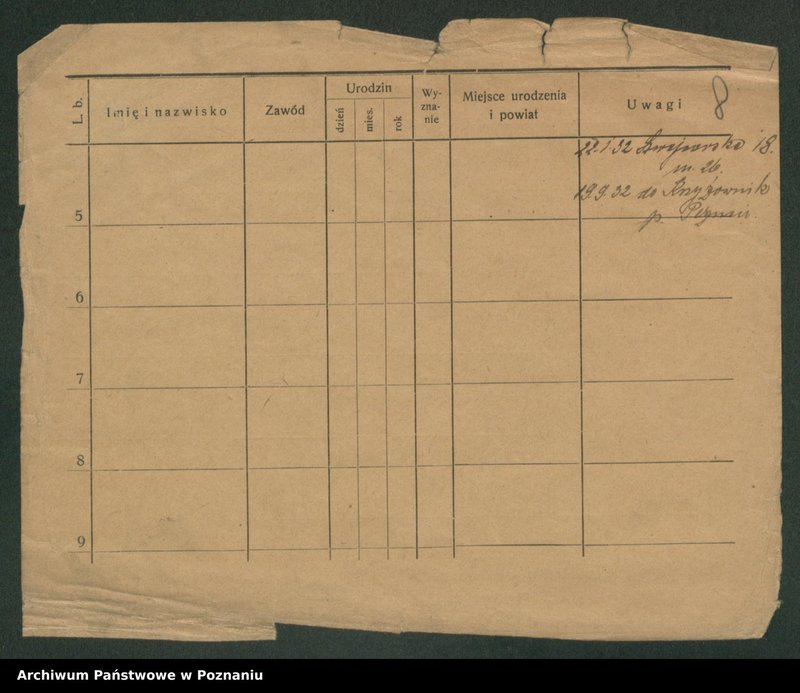 L. b.
Imię i nazwisko
Zawód
Urodzin
dzień
mies.
rok
Wy-
zna-
nie
Miejsce urodzenia
i powiat
Uwagi
8
22.1.32 18.
m. 26.
19.9.32 do Krzyżownik
p. Poznań.
5
6
7
8
9
Archiwum Państwowe w Poznaniu